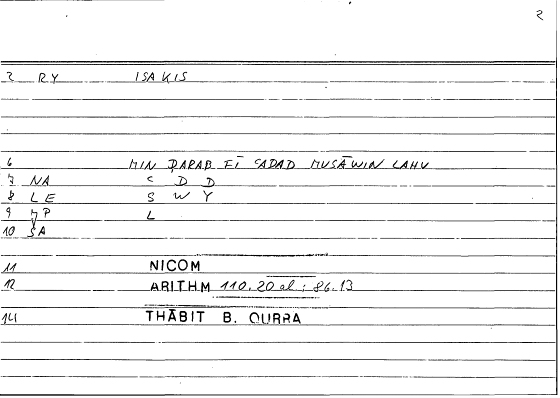 2
2 RY ISAKIS
6 MIN ḌARAB FĪ ʿADAD MUSĀWIN LAHU
7 NA C D D
8 LE S W Y
9 JP L
10 ŠA
11 NICOM
12 ARITHM 110.20 al.; 86.13
14 THĀBIT B. QURRA